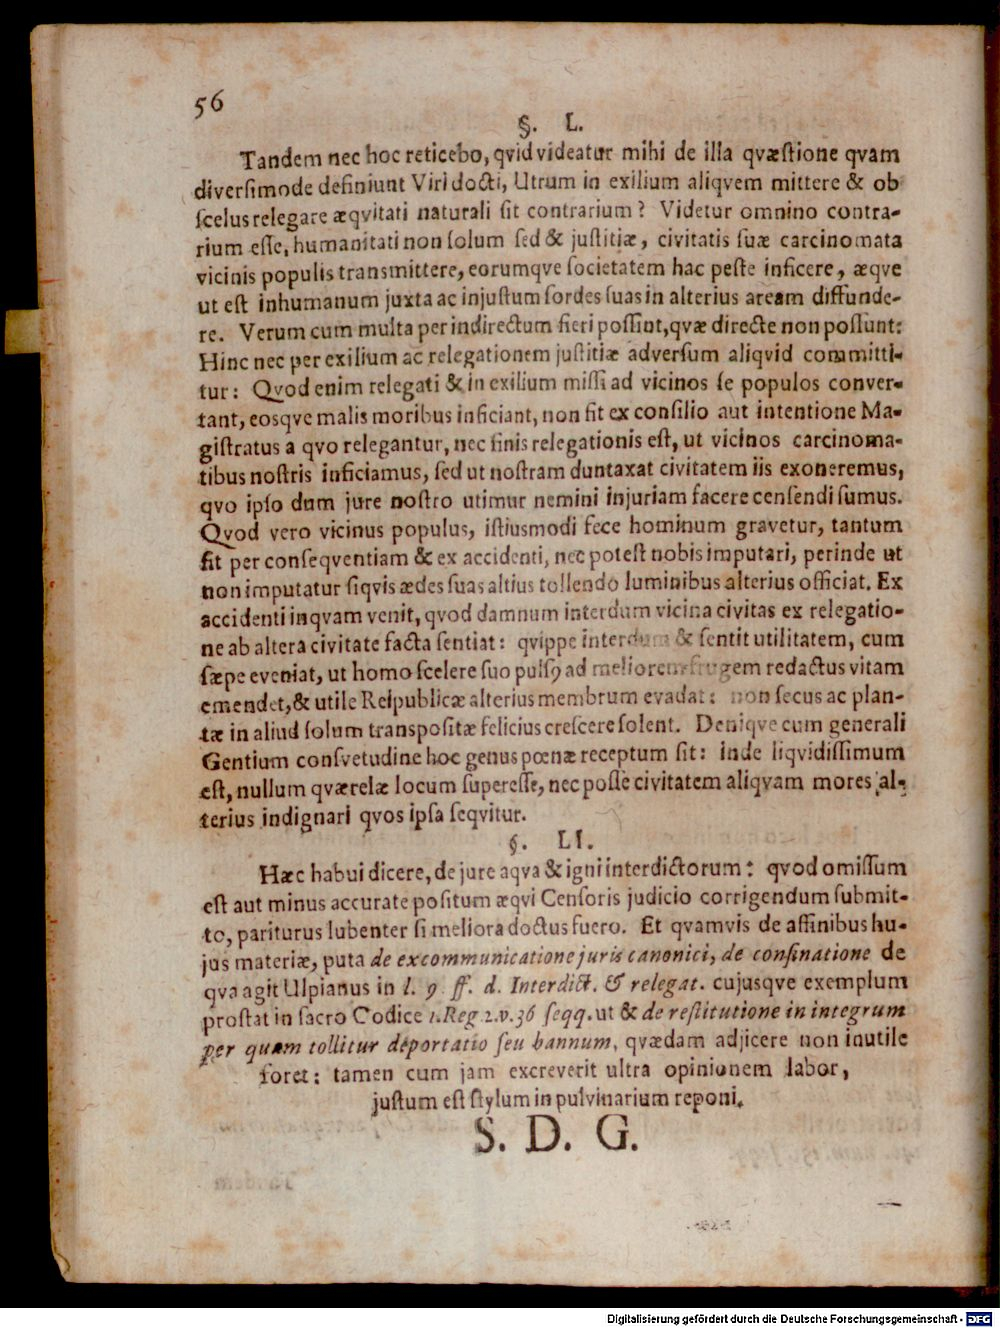 56
§. L.
Tandem nec hoc reticebo, qvid videatur mihi de illa qvæstione qvam
diversimode definiunt Viri docti, Utrum in exilium aliqvem mittere & ob
scelus relegare æqvitati naturali sit contrarium? Videtur omnino contra-
rium esse, humanitati non solum sed & justitiæ, civitatis suæ carcinomata
vicinis populis transmittere, eorumqve societatem hac peste inficere, æqve
ut est inhumanum juxta ac injustum sordes suas in alterius aream diffunde-
re. Verum cum multa per indirectum fieri possint, qvæ directe non possunt:
Hinc nec per exilium ac relegationem justitiæ adversum aliqvid committi-
tur: Qvod enim relegati & in exilium missi ad vicinos se populos conver-
tant, eosqve malis moribus inficiant, non fit ex consilio aut intentione Ma-
gistratus a qvo relegantur, nec finis relegationis est, ut vicinos carcinoma-
tibus nostris inficiamus, sed ut nostram duntaxat civitatem iis exoneremus,
qvo ipso dum jure nostro utimur nemini injuriam facere censendi sumus.
Qvod vero vicinus populus, istiusmodi fece hominum gravetur, tantum
fit per conseqventiam & ex accidenti, nec potest nobis imputari, perinde ut
non imputatur siqvis ædes suas altius tollendo luminibus alterius officiat. Ex
accidenti inqvam venit, qvod damnum interdum vicina civitas ex relegatio-
ne ab altera civitate facta sentiat: qvippe interdum & sentit utilitatem, cum
sæpe eveniat, ut homo scelere suo pulsꝰ ad meliorem frugem redactus vitam
emendet, & utile Reipublicæ alterius membrum evadat: non secus ac plan-
tæ in aliud solum transpositæ felicius crescere solent. Deniqve cum generali
Gentium consvetudine hoc genus pœnæ receptum sit: inde liqvidissimum
est, nullum qværelæ locum superesse, nec posse civitatem aliqvam mores al-
terius indignari qvos ipsa seqvitur.
§. LI.
Hæc habui dicere, de jure aqva & igni interdictorum: qvod omissum
est aut minus accurate positum æqvi Censoris judicio corrigendum submit-
to, pariturus lubenter si meliora doctus fuero. Et qvamvis de affinibus hu-
jus materiæ, puta de excommunicatione juris canonici, de confinatione de
qva agit Ulpianus in l. 9 ff. d. Interdict. & relegat. cujusqve exemplum
prostat in sacro Codice 1. Reg 2. v. 36 seqq. ut & de restitutione in integrum
per quam tollitur deportatio seu bannum, qvædam adjicere non inutile
foret: tamen cum jam excreverit ultra opinionem labor,
justum est stylum in pulvinarium reponi.
S. D. G.
Digitalisierung gefördert durch die Deutsche Forschungsgemeinschaft - DFG